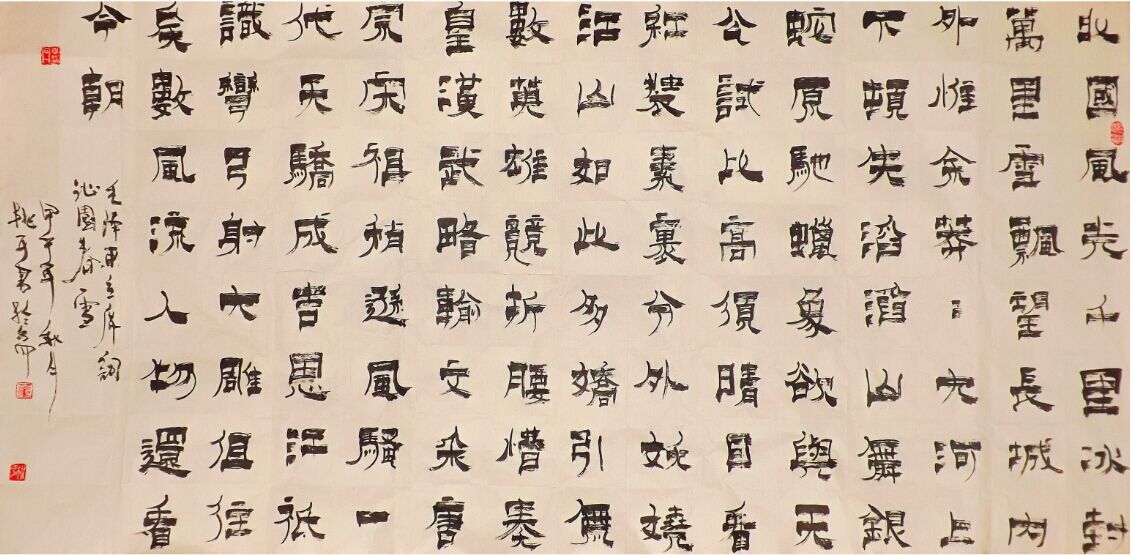 北國風光千里冰封
萬里雪飄望長城內
外惟余莽〻大河上
下頓失滔滔山舞銀
蛇原馳蠟象欲與天
公試比高須晴日看
紅裝素裹分外妖嬈
江山如此多嬌引無
數英雄競折腰惜秦
皇漢武略輸文采唐
宗宋祖稍遜風騷一
代天驕成吉思汗祇
識彎弓射大雕俱往
矣數風流人物還看
今朝
毛澤東主席詞
沁園春雪
甲午年秋月
姚平書於